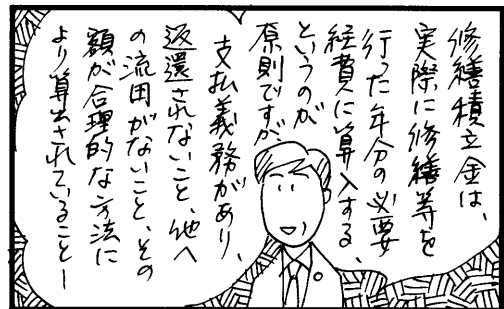 修繕積立金は、
実際に修繕等を
行った年分の必要
経費に算入する、
というのが
原則ですが
支払義務があり、
返還されないこと、他へ
の流用がないこと、その
額が合理的な方法に
より算出されていること―